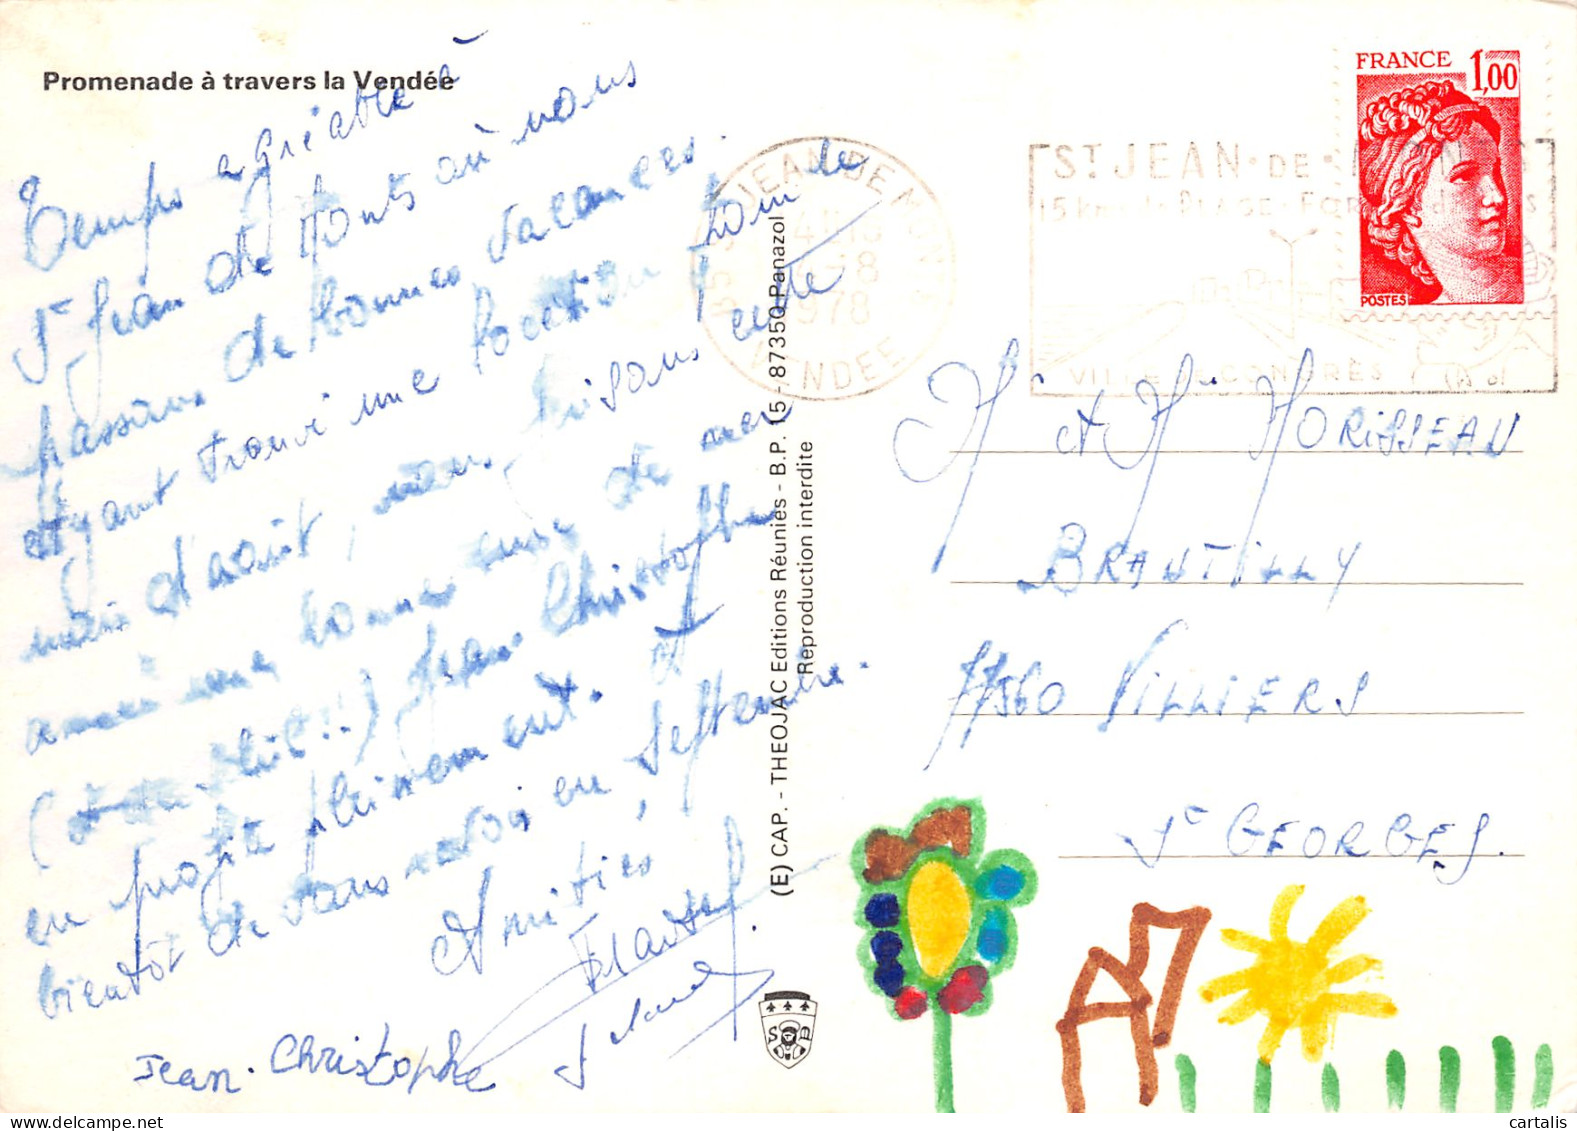 Promenade à travers la Vendée
Temps agréable à
St Jean de Monts où nous
passons de bonnes vacances.
Ayant trouvé une location pour le
mois d'août, nous faisons cette
année une bonne cure de mer
Jean Christophe
en profite pleinement. A
bientôt de vous revoir en Septembre.
Amitiés,
Jean-Christophe
(E) CAP. - THEOJAC Editions Réunies - B.P. 15 - 87350 Panazol
Reproduction interdite
ST JEAN DE MONTS
VENDEE
1978
ST JEAN · DE · MONTS
15 km de PLAGE · FORET
VILLE DE CONGRÈS
FRANCE 1,00
POSTES
M et M MORISSEAU
BRANTILLY
77560 VILLIERS
St GEORGES.
cartalis